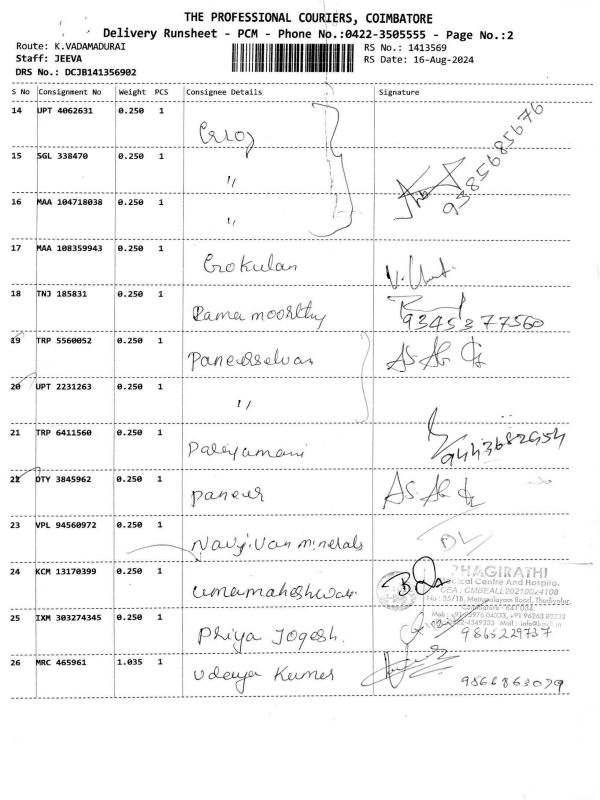 THE PROFESSIONAL COURIERS, COIMBATORE
Delivery Runsheet - PCM - Phone No.:0422-3505555 - Page No.:2
Route: K.VADAMADURAI RS No.: 1413569
Staff: JEEVA RS Date: 16-Aug-2024
DRS No.: DCJB141356902
S No Consignment No Weight PCS Consignee Details Signature
14 UPT 4062631 0.250 1
15 SGL 338470 0.250 1 " 9385685676
16 MAA 104718038 0.250 1 "
17 MAA 108359943 0.250 1 Gokulan
18 TNJ 185831 0.250 1 Ramamoorthy 9345377560
19 TRP 5560052 0.250 1 Paneerselvam
20 UPT 2231263 0.250 1 "
21 TRP 6411560 0.250 1 Paleyamani 9443682954
22 OTY 3845962 0.250 1 paneer
23 VPL 94560972 0.250 1 Navjivan minerals
24 KCM 13170399 0.250 1 umamaheshwari
BHAGIRATHI
Medical Centre And Hospital
No : 35/18, Mettupalayam Road, Thudiyalur,
Coimbatore - 641 034.
25 IXM 303274345 0.250 1 Priya Jogesh. 9865229737
26 MRC 465961 1.035 1 udeya Kumer 9566863079